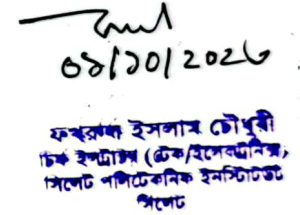 ০৯/১০/২০২৬
ফখরুল ইসলাম চৌধুরী
চিফ ইন্সট্রাক্টর (টেক/ইলেকট্রনিক্স)
সিলেট পলিটেকনিক ইনস্টিটিউট
সিলেট